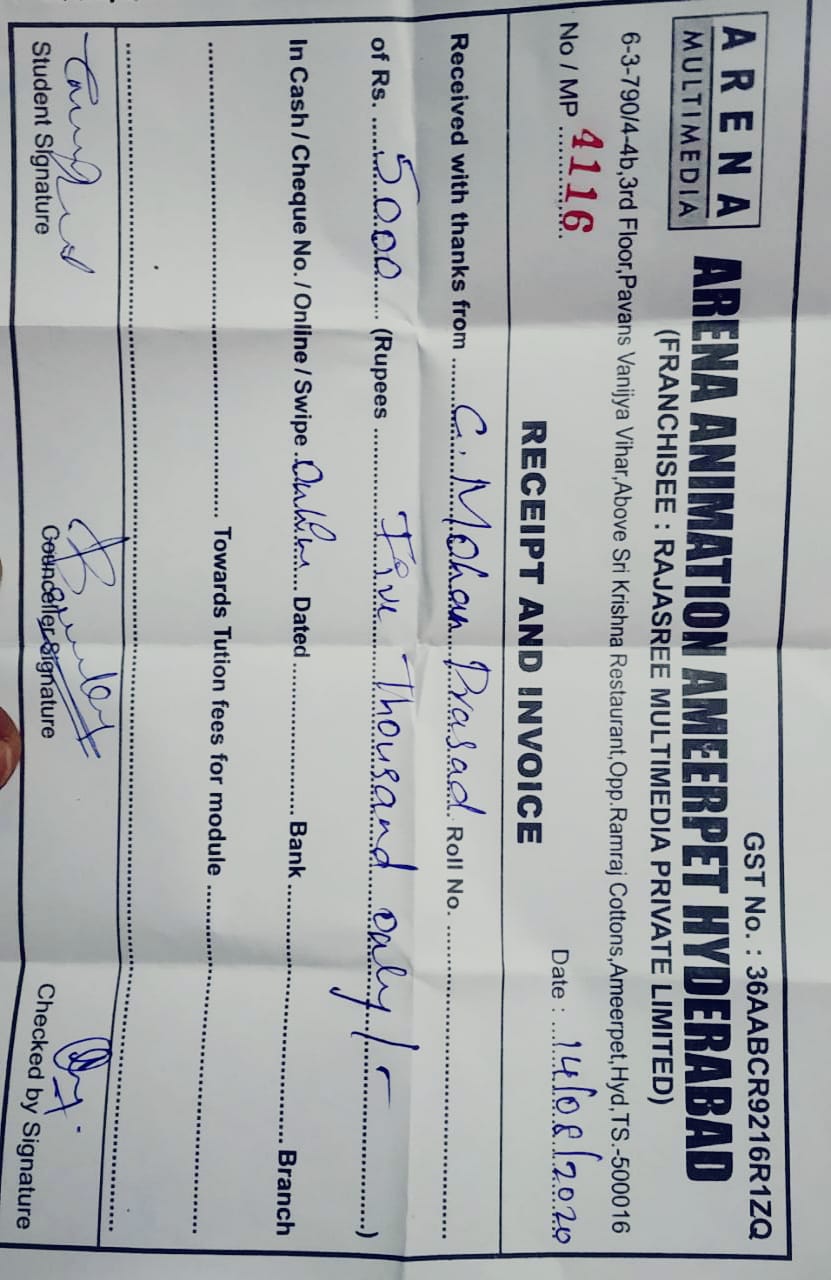 GST No. : 36AABCR9216R1ZQ
ARENA
MULTIMEDIA
ARENA ANIMATION AMEERPET HYDERABAD
(FRANCHISEE : RAJASREE MULTIMEDIA PRIVATE LIMITED)
6-3-790/4-4b,3rd Floor,Pavans Vanijya Vihar,Above Sri Krishna Restaurant,Opp.Ramraj Cottons,Ameerpet,Hyd,TS.-500016
No / MP 4116 Date : 14/08/2020
RECEIPT AND INVOICE
Received with thanks from C. Mohan Prasad Roll No.
of Rs. 5000 (Rupees Five Thousand only/-)
In Cash / Cheque No. / Online / Swipe Online Dated Bank Branch
Towards Tution fees for module
Student Signature Counceller Signature Checked by Signature